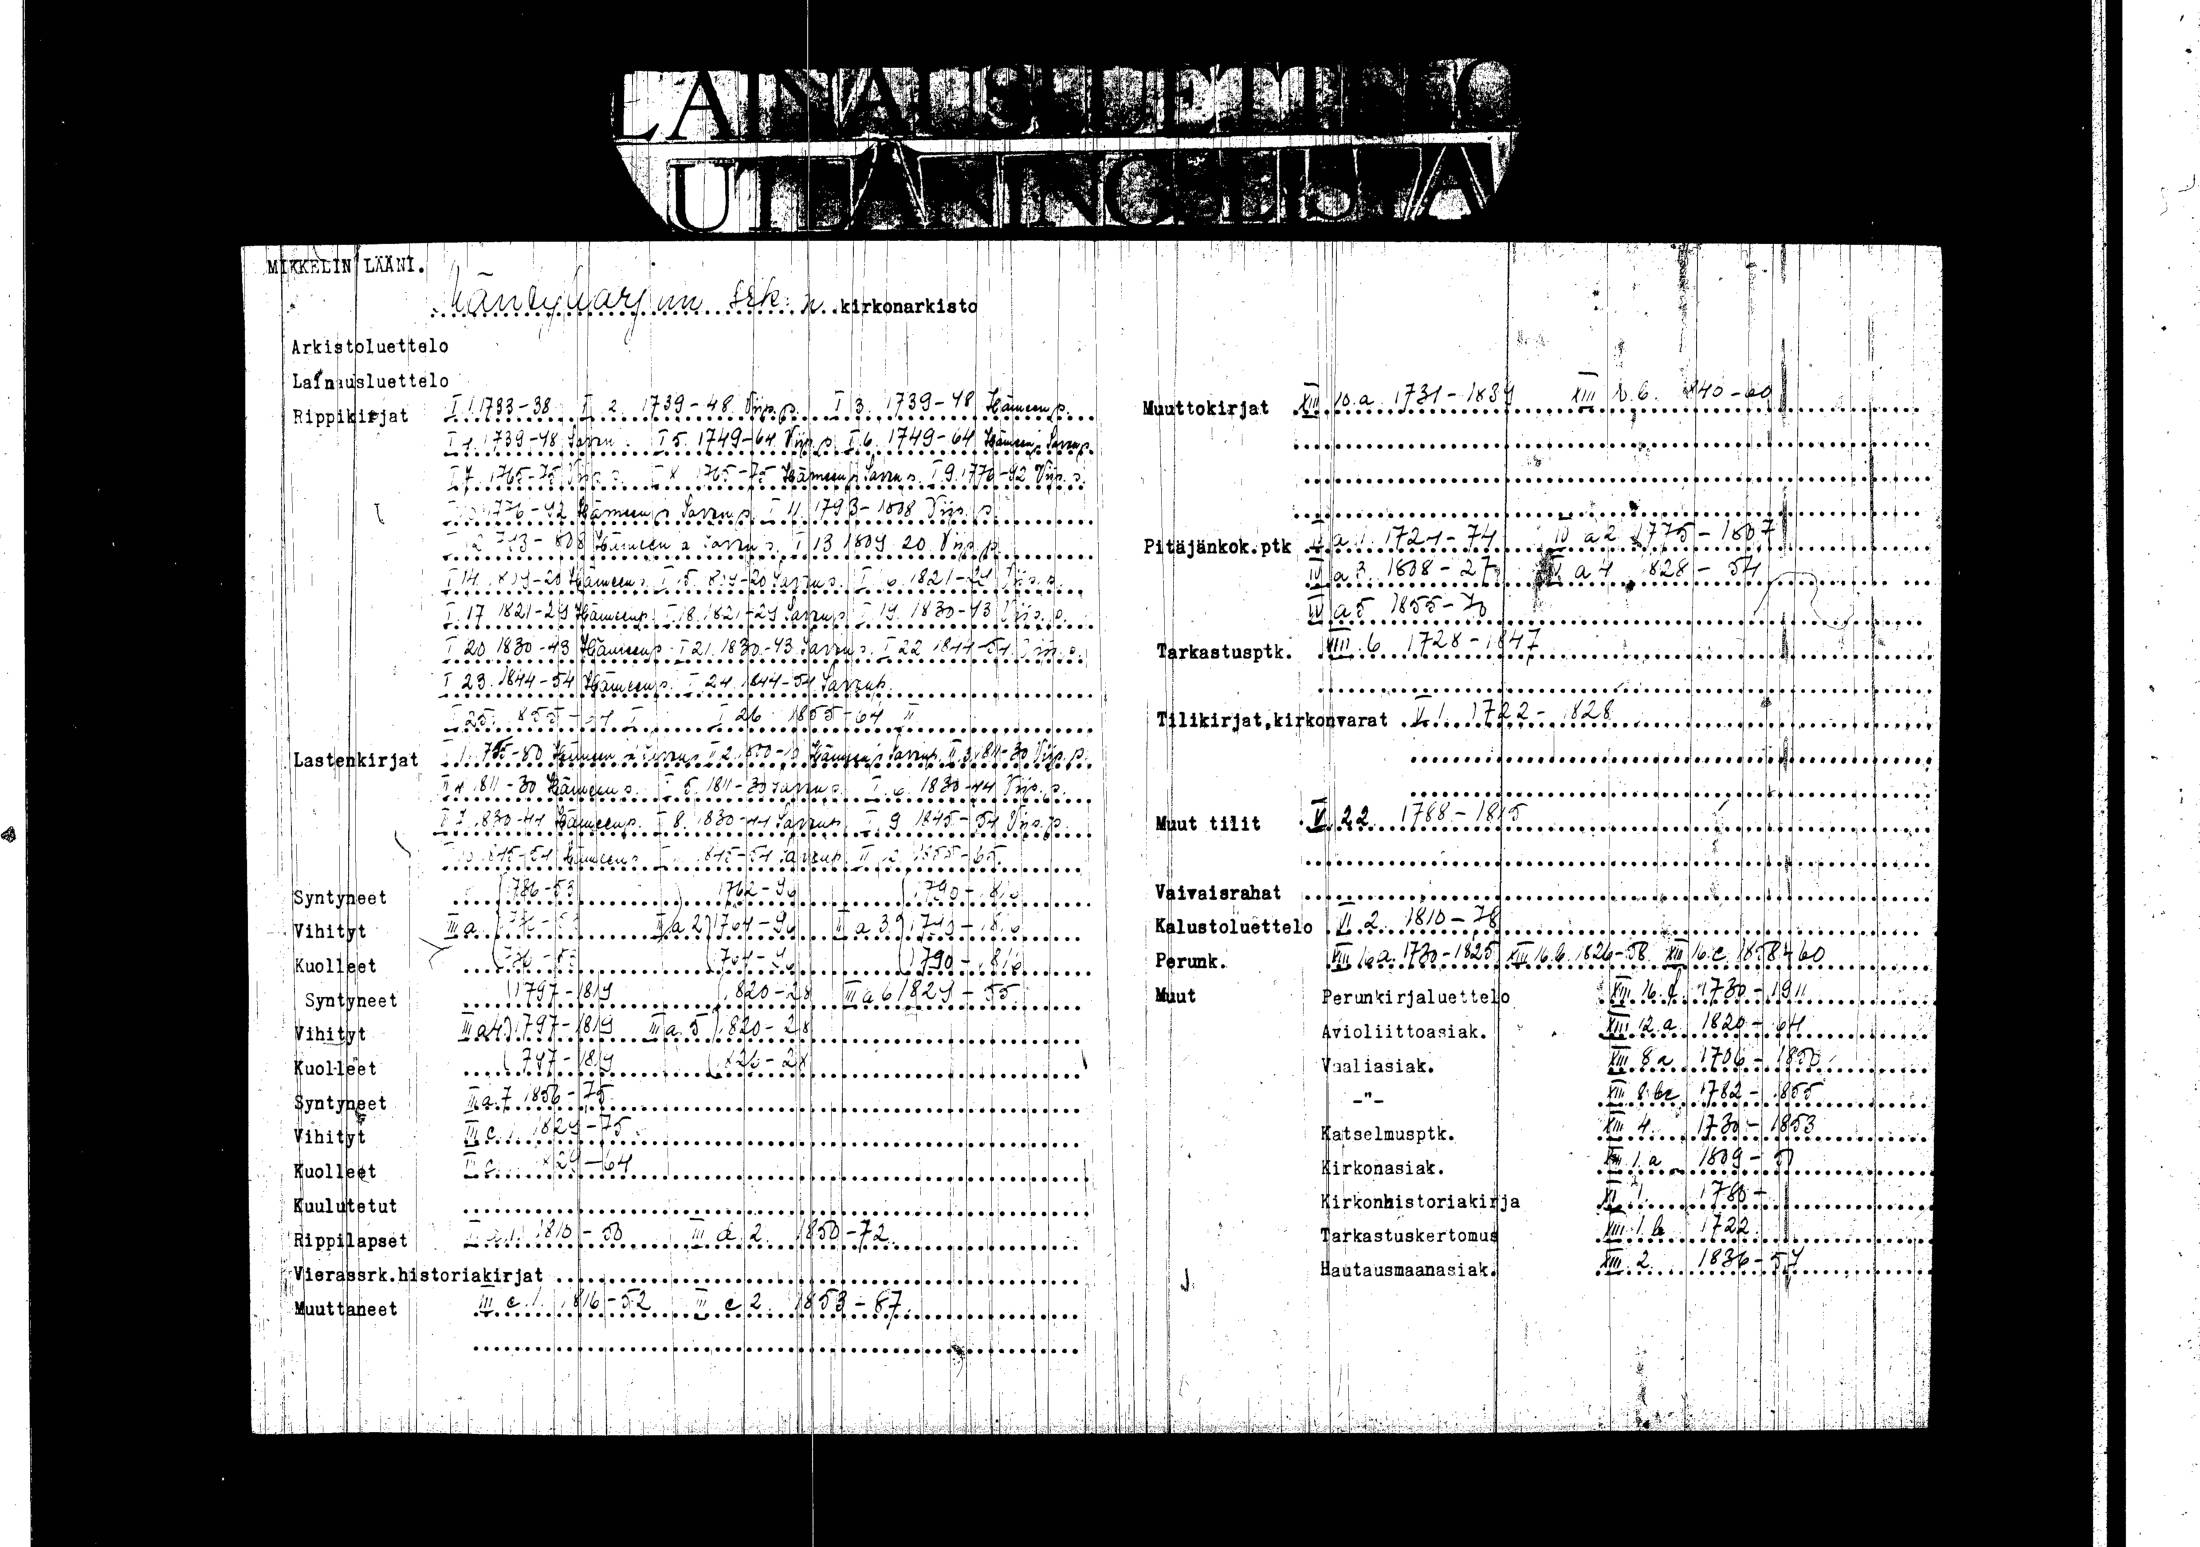 LAINAUSLUETTELO
UTLÅNINGSLISTA
MIKKELIN LÄÄNI.
Mäntyharjun srk:n kirkonarkisto
Arkistoluettelo
Lainausluettelo
Rippikirjat I 1. 1733-38 I 2. 1739-48 Viip.p. I 3. 1739-48 Hämeenp.
I 4. 1739-48 Savon I 5. 1749-64 Viip.p. I 6. 1749-64 Hämeen, Savonp.
I 7. 1765-75 Viip.p. I 8. 1765-75 Hämeenp. Savonp. I 9. 1776-92 Viip.p.
I 10. 1776-92 Hämeenp. Savonp. I 11. 1793-1808 Viip.p.
I 12. 1793-808 Hämeen a Savonp. I 13 1809-20 Viip.p.
I 14. 1809-20 Hämeenp. I 15. 1809-20 Savonp. I 16. 1821-29 Viip.p.
I 17 1821-29 Hämeenp. I 18. 1821-29 Savonp. I 19. 1830-43 Viip.p.
I 20 1830-43 Hämeenp. I 21. 1830-43 Savonp. I 22 1844-54 Viip.p.
I 23. 1844-54 Hämeenp. I 24. 1844-54 Savonp.
I 25. 1855-64 I I 26 1855-64 II
Lastenkirjat Hämeenp. Savonp. II 3. 1811-30 Viip.p.
II 4 1811-30 Hämeenp. II 5. 1811-30 Savonp. II 6. 1830-44 Viip.p.
II 7. 1830-44 Hämeenp. II 8. 1830-44 Savonp. II 9 1845-54 Viip.p.
II 10. 1845-54 Hämeenp. II 11. 1845-54 Savonp. II 12. 1855-65.
Syntyneet 1762-96 1790-1816
Vihityt III a 1 III a 2 1764-96 III a 3 1790-1816
Kuolleet 1764-96 1790-1816
Syntyneet 1797-1819 1820-28 III a 6 1829-55
Vihityt III a 4 1797-1819 III a 5 1820-28
Kuolleet 1797-1819 1820-28
Syntyneet III a 7 1856-75
Vihityt III c 1. 1829-75.
Kuolleet 1829-64
Kuulutetut
Rippilapset 1. 1810-50 III d 2. 1850-72
Vierassrk.historiakirjat
Muuttaneet III e 1. 1816-52 III e 2. 1853-67.
Muuttokirjat XIII 10.a. 1731-1839 XIII 10.b. 1840-60
Pitäjänkok.ptk IV a 1. 1721-74 IV a 2 1775-1807
IV a 3. 1808-27 IV a 4 1828-54
IV a 5 1855-70
Tarkastusptk. XIII. 6 1728-1847
Tilikirjat,kirkonvarat V 1. 1722-1828
Muut tilit V 22. 1788-1815
Vaivaisrahat
Kalustoluettelo VI 2. 1810-78
Perunk. XIII 16 a. 1730-1825 XIII 16.b. 1826-58 XIII 16.c. 1858-60
Muut Perunkirjaluettelo XIII 16.d. 1730-1911
Avioliittoasiak. XIII 12.a 1820-64
Vaaliasiak. XIII 8 a 1706-1850
-"- XIII 8 b 1782-1855
Katselmusptk. XIII 4. 1730-1853
Kirkonasiak. XIII 1.a 1809-
Kirkonhistoriakirja XI 1. 1780-
Tarkastuskertomus XIII 1.b 1722
Hautausmaanasiak. XIII 2. 1836-57